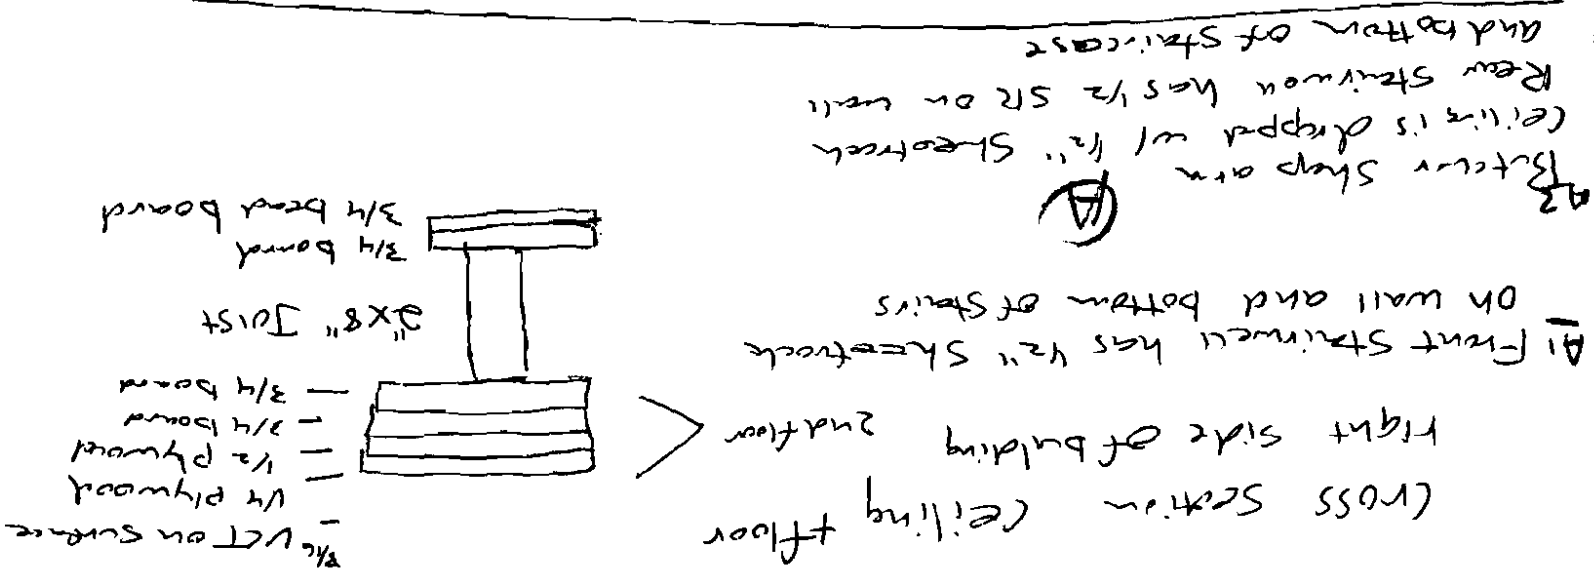 Cross Section Ceiling + floor
right side of building 2nd floor
A1 Front Stairwell has 1/2" Sheetrock
on wall and bottom of stairs
A
A2 Butcher Shop
Ceiling is dropped w/ 1/2" Sheetrock
Rear Stairwell has 1/2 SR on wall
and bottom of staircase
3/16 VCT on surface
1/4 plywood
1/2 plywood
3/4 board
3/4 board
2"x8" Joist
3/4 board
3/4 bead board